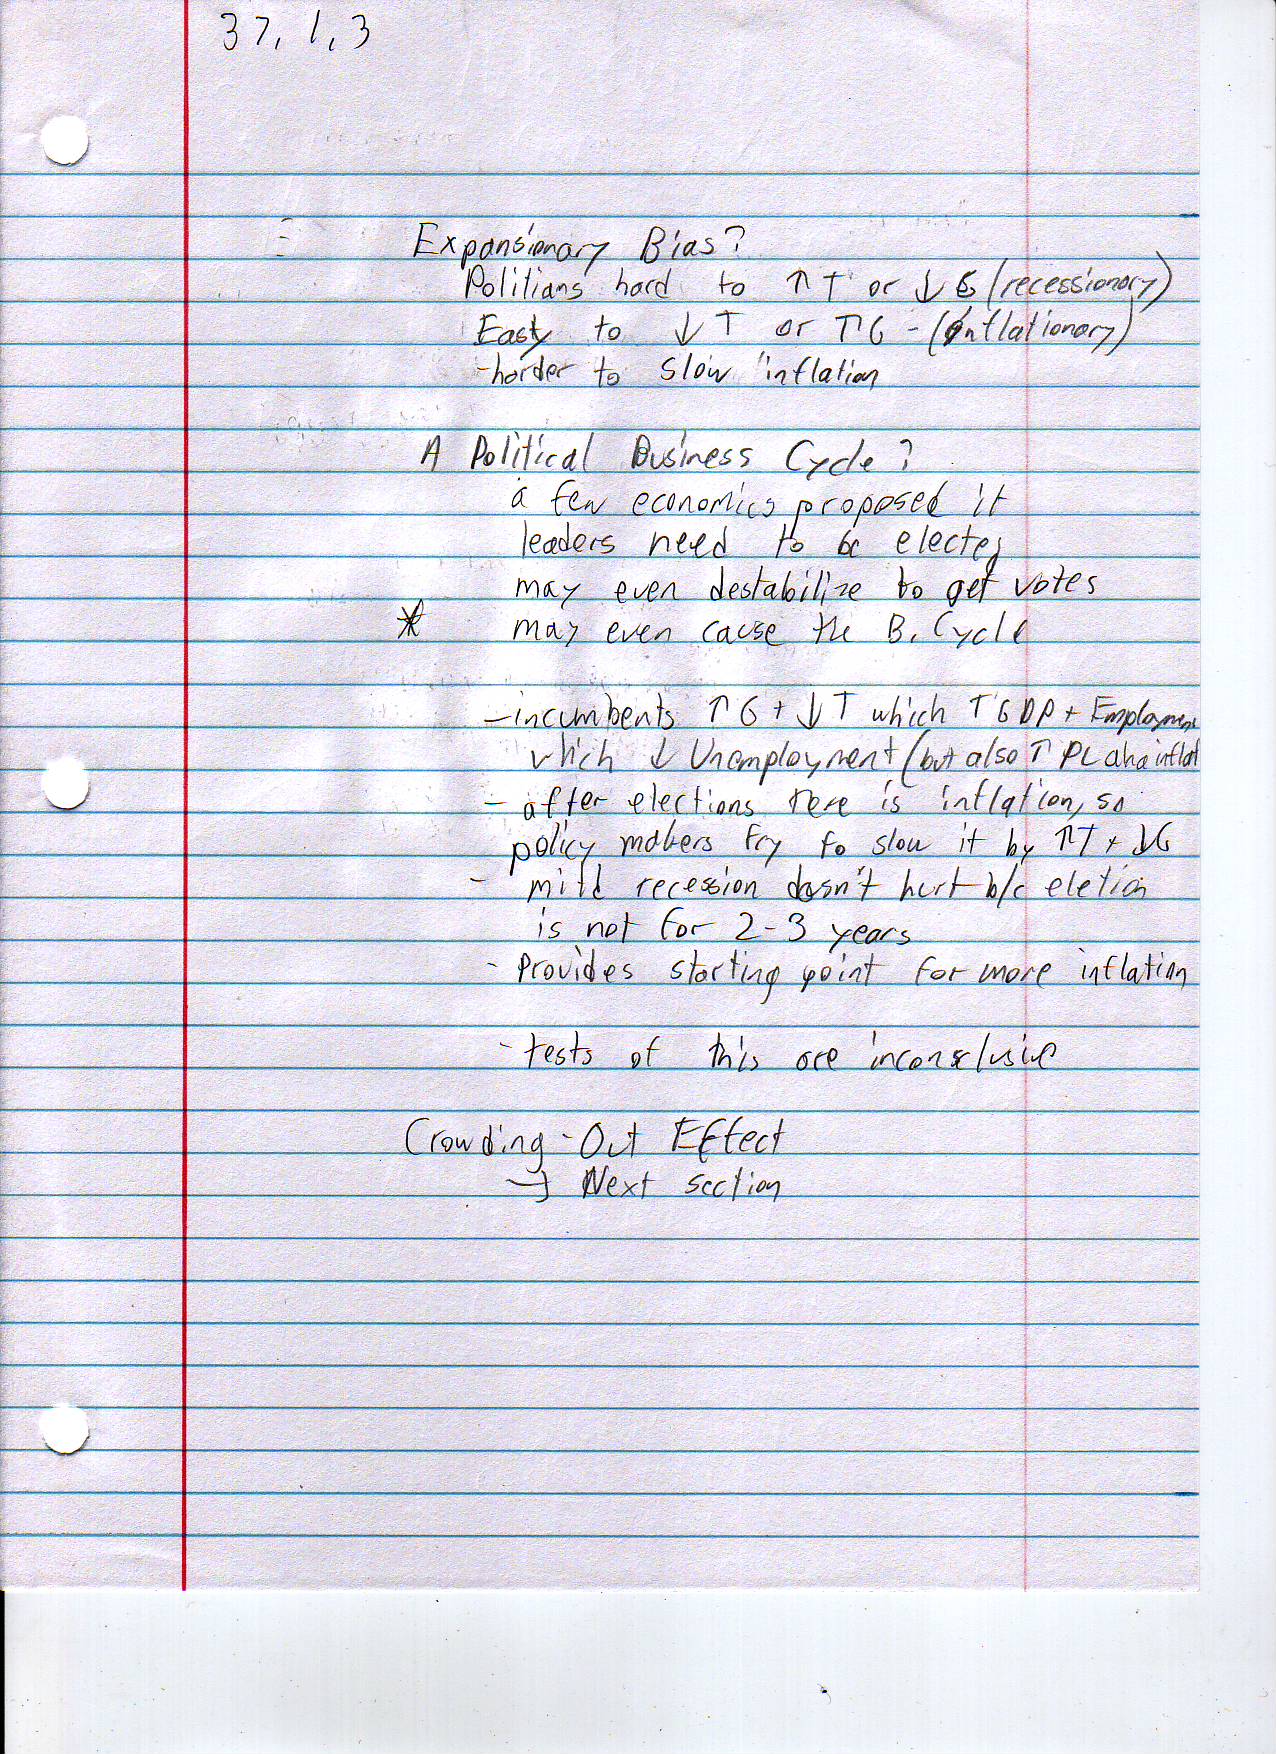 37, 1, 3
Expansionary Bias?
Politians hard to ↑ T or ↓ G (recessionary)
Easy to ↓ T or ↑ G - (inflationary)
- harder to slow inflation
A Political Business Cycle?
a few economics proposed it
leaders need to be elected
may even destabilize to get votes
* may even cause the B. Cycle
- incumbents ↑ G + ↓ T which ↑ GDP + Employment
which ↓ Unemployment (but also ↑ PL aka inflat
- after elections there is inflation, so
policy makers try to slow it by ↑T + ↓G
- mild recession doesn't hurt b/c eletion
is not for 2-3 years
- Provides starting point for more inflation
- tests of this are inconclusive
Crowding-Out Effect
→ Next section